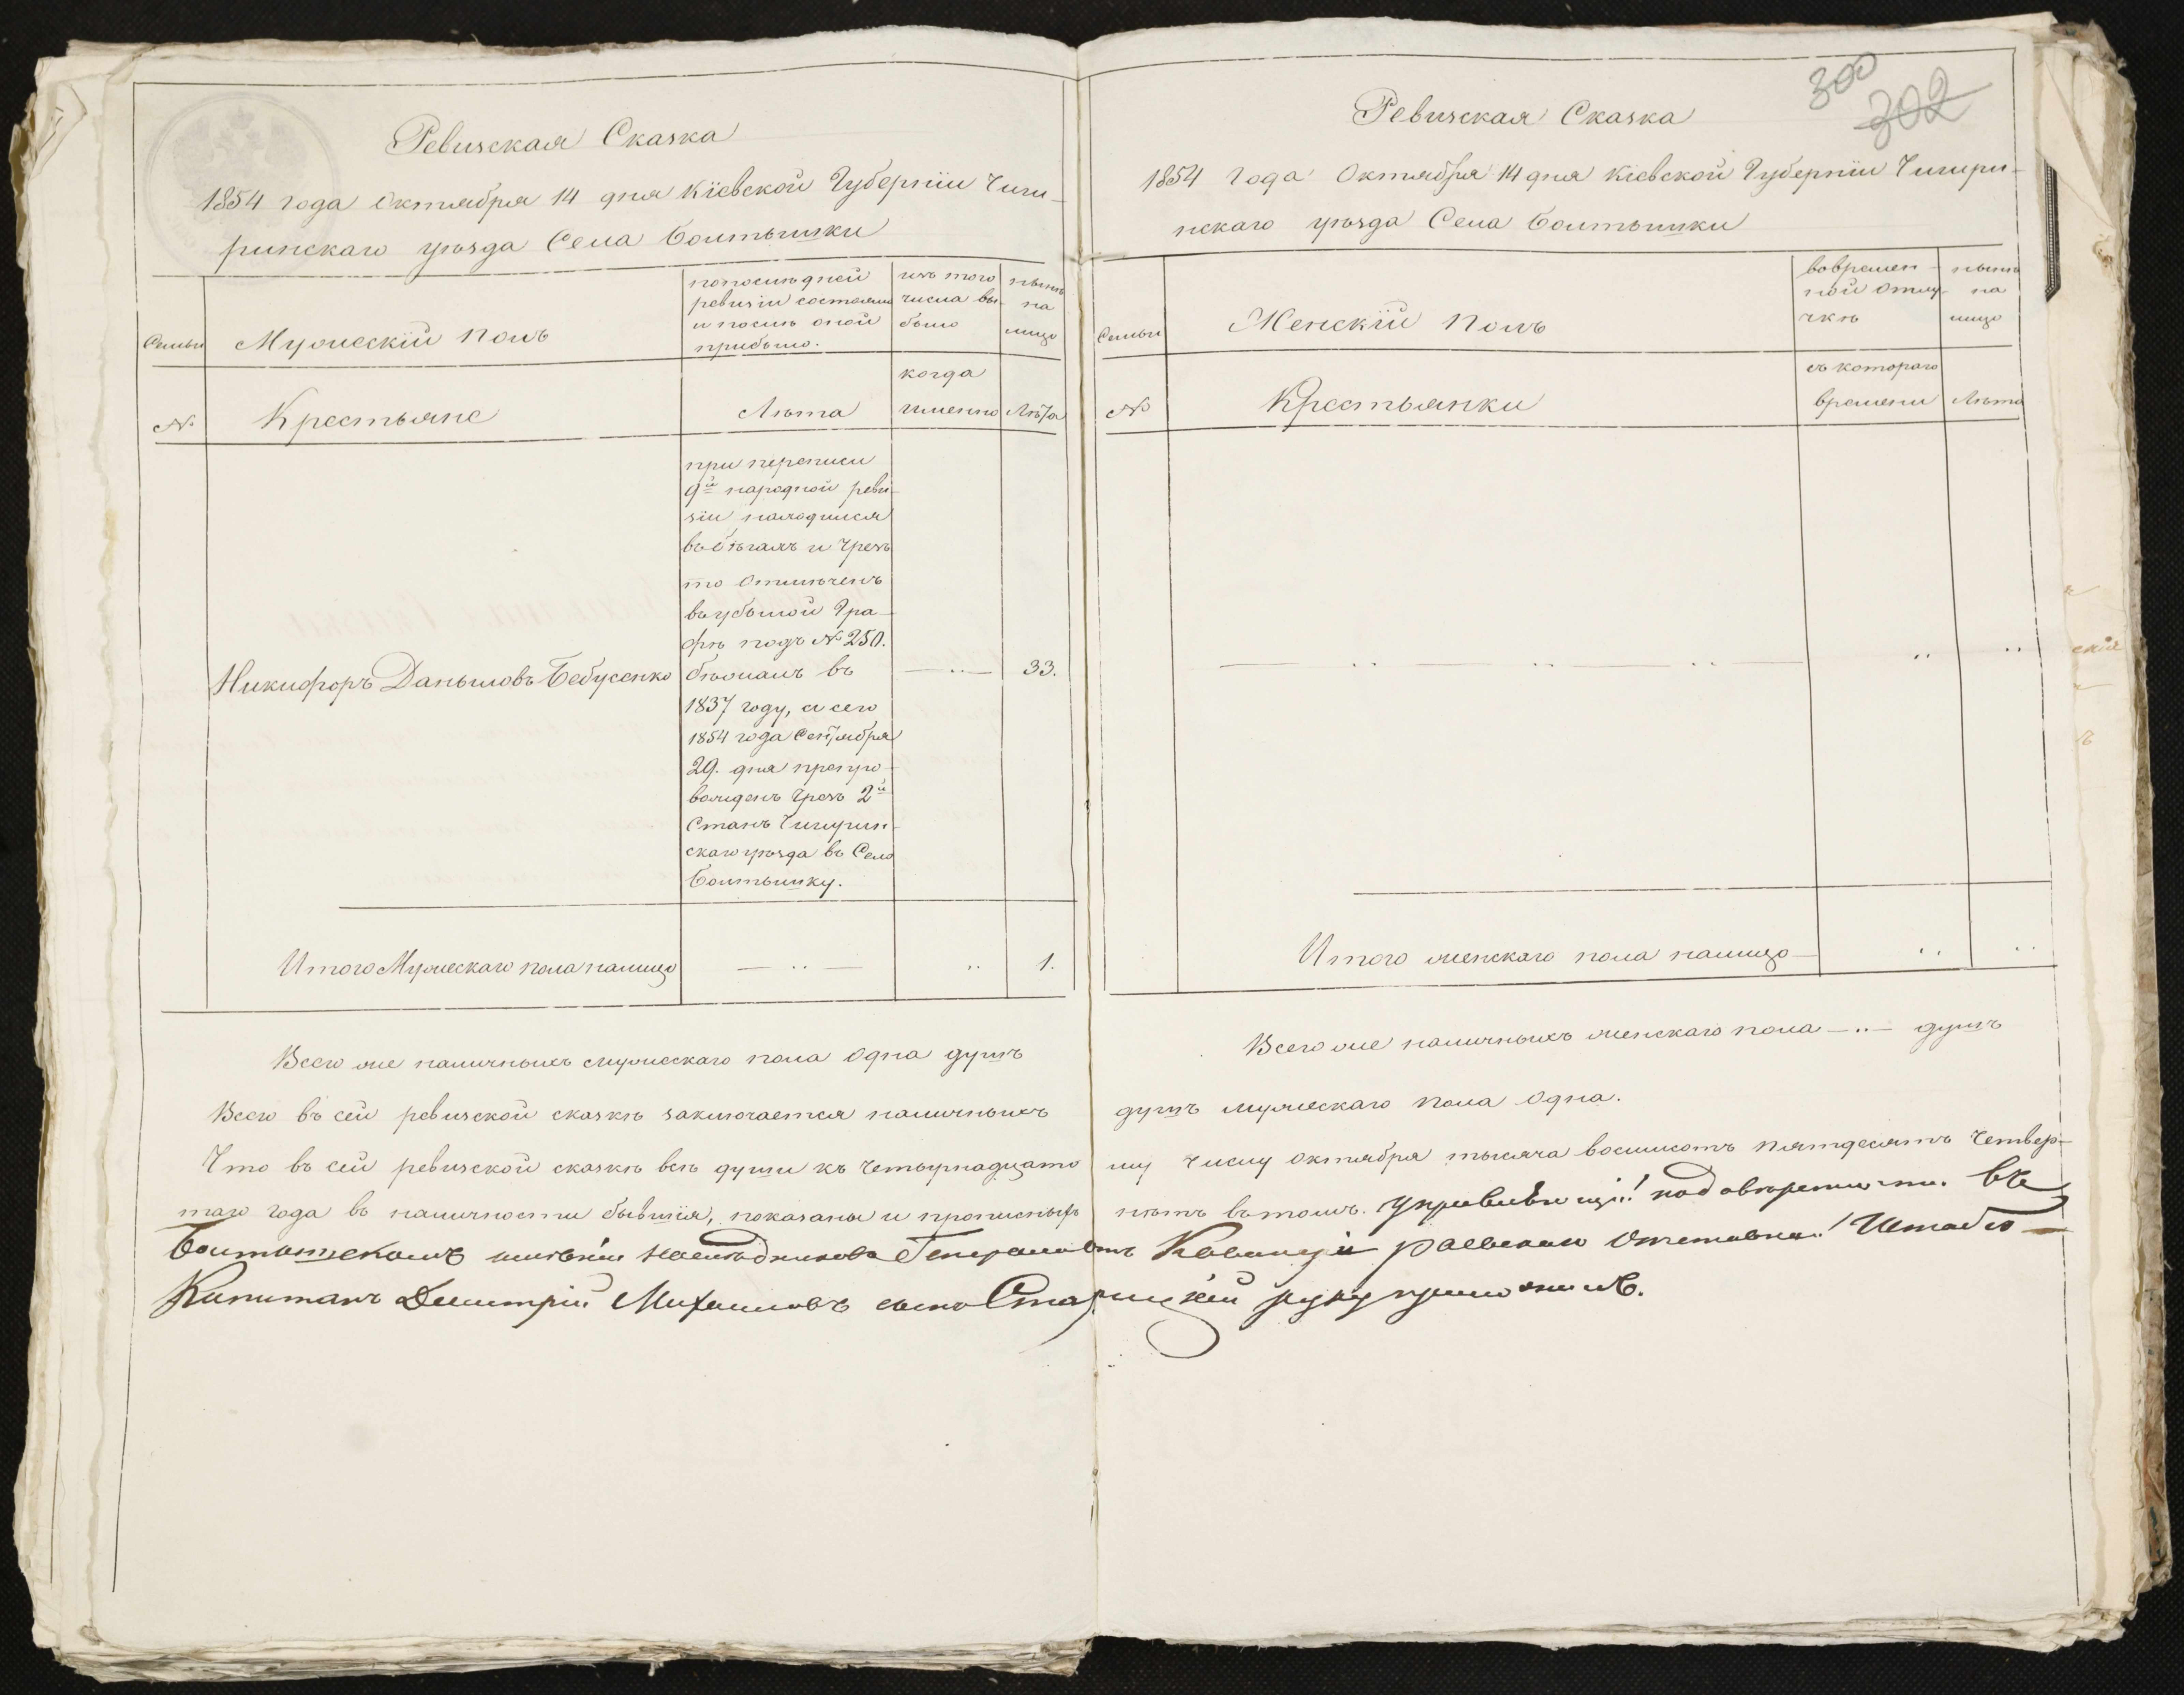 Ревизская Сказка
1854 года Октября 14 дня Кіевской Губерніи Чиги-
ринскаго уѣзда Села Болтышки
Семьи
Мужескій полъ
по послѣдней
ревизіи состояло
и послѣ оной
прибыло.
изъ того
числа вы-
было
нынѣ
на
лицо
№
Крестьяне
Лѣта
когда
именно
Лѣта
при переписи
9й народной реви-
зіи находился
въ бѣгахъ и чрезъ
то отмѣченъ
въ убылой Гра-
фѣ подъ № 250.
Никифоръ Даныловъ Бебусенко
бѣжалъ въ
— .. —
33.
1837 году, а сего
1854 года Сентября
29. дня препро-
вожденъ чрезъ 2й
Станъ Чигирин-
скаго уѣзда въ Село
Болтышку.
Итого Мужескаго пола налицо
— .. —
..
1.
Всего же наличныхъ мужескаго пола одна душъ
Ревизская Сказка
300
302
1854 года Октября 14 дня Кіевской Губерніи Чигири-
нскаго уѣзда Села Болтышки
Семьи
Женскій полъ
во времен-
ной отлу-
чкѣ
нынѣ
на
лицо
№
Крестьянки
съ котораго
времени
Лѣта
— .. — .. — .. —
..
..
Итого женскаго пола налицо —
..
..
Всего же наличныхъ женскаго пола — .. — душъ
Всего въ сей ревизской сказкѣ заключается наличныхъ душъ мужескаго пола одна.
Что въ сей ревизской сказкѣ всѣ души къ четырнадцато му числу октября тысяча восимсотъ пятдесятъ четвер-
таго года въ наличности бывшія, показаны и прописныхъ нѣтъ въ томъ. Управляющій по довѣренности въ
Болтышскомъ имѣніи наслѣдниковъ Генерала отъ Кавалеріи Раевскаго отставной Штабсъ-
Капитанъ Димитрій Михаиловъ сынъ Старицкій руку приложилъ.